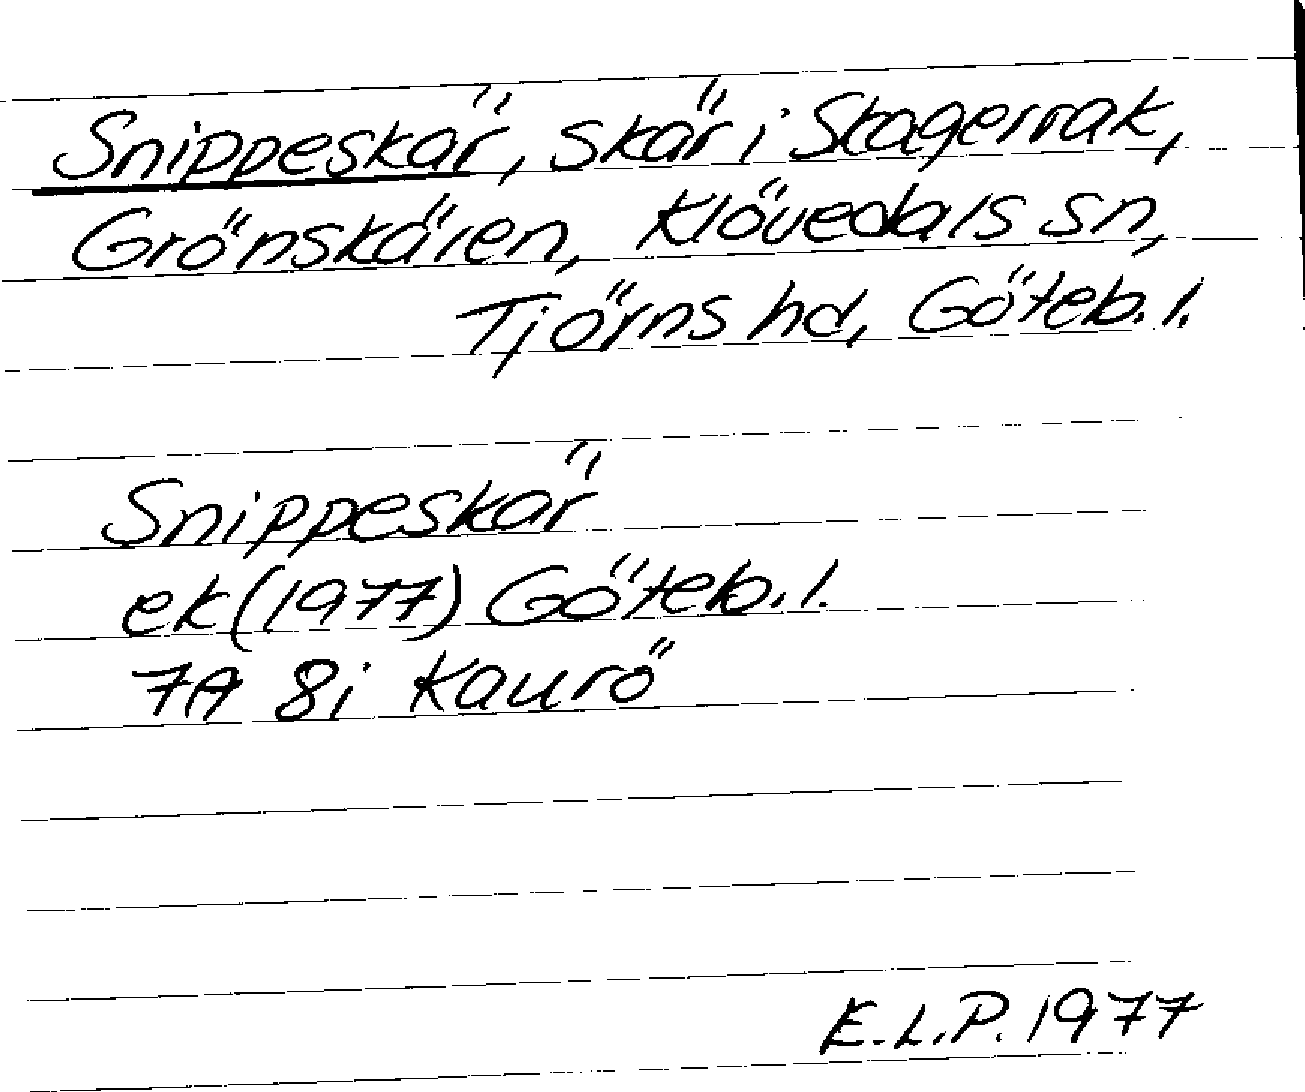 Snippeskär, skär i Skagerrak,
Grönskären, Klövedals sn,
Tjörns hd, Göteb. l.
Snippeskär
ek (1977) Göteb. l.
7A 8i Kaurö
E.L.P. 1977